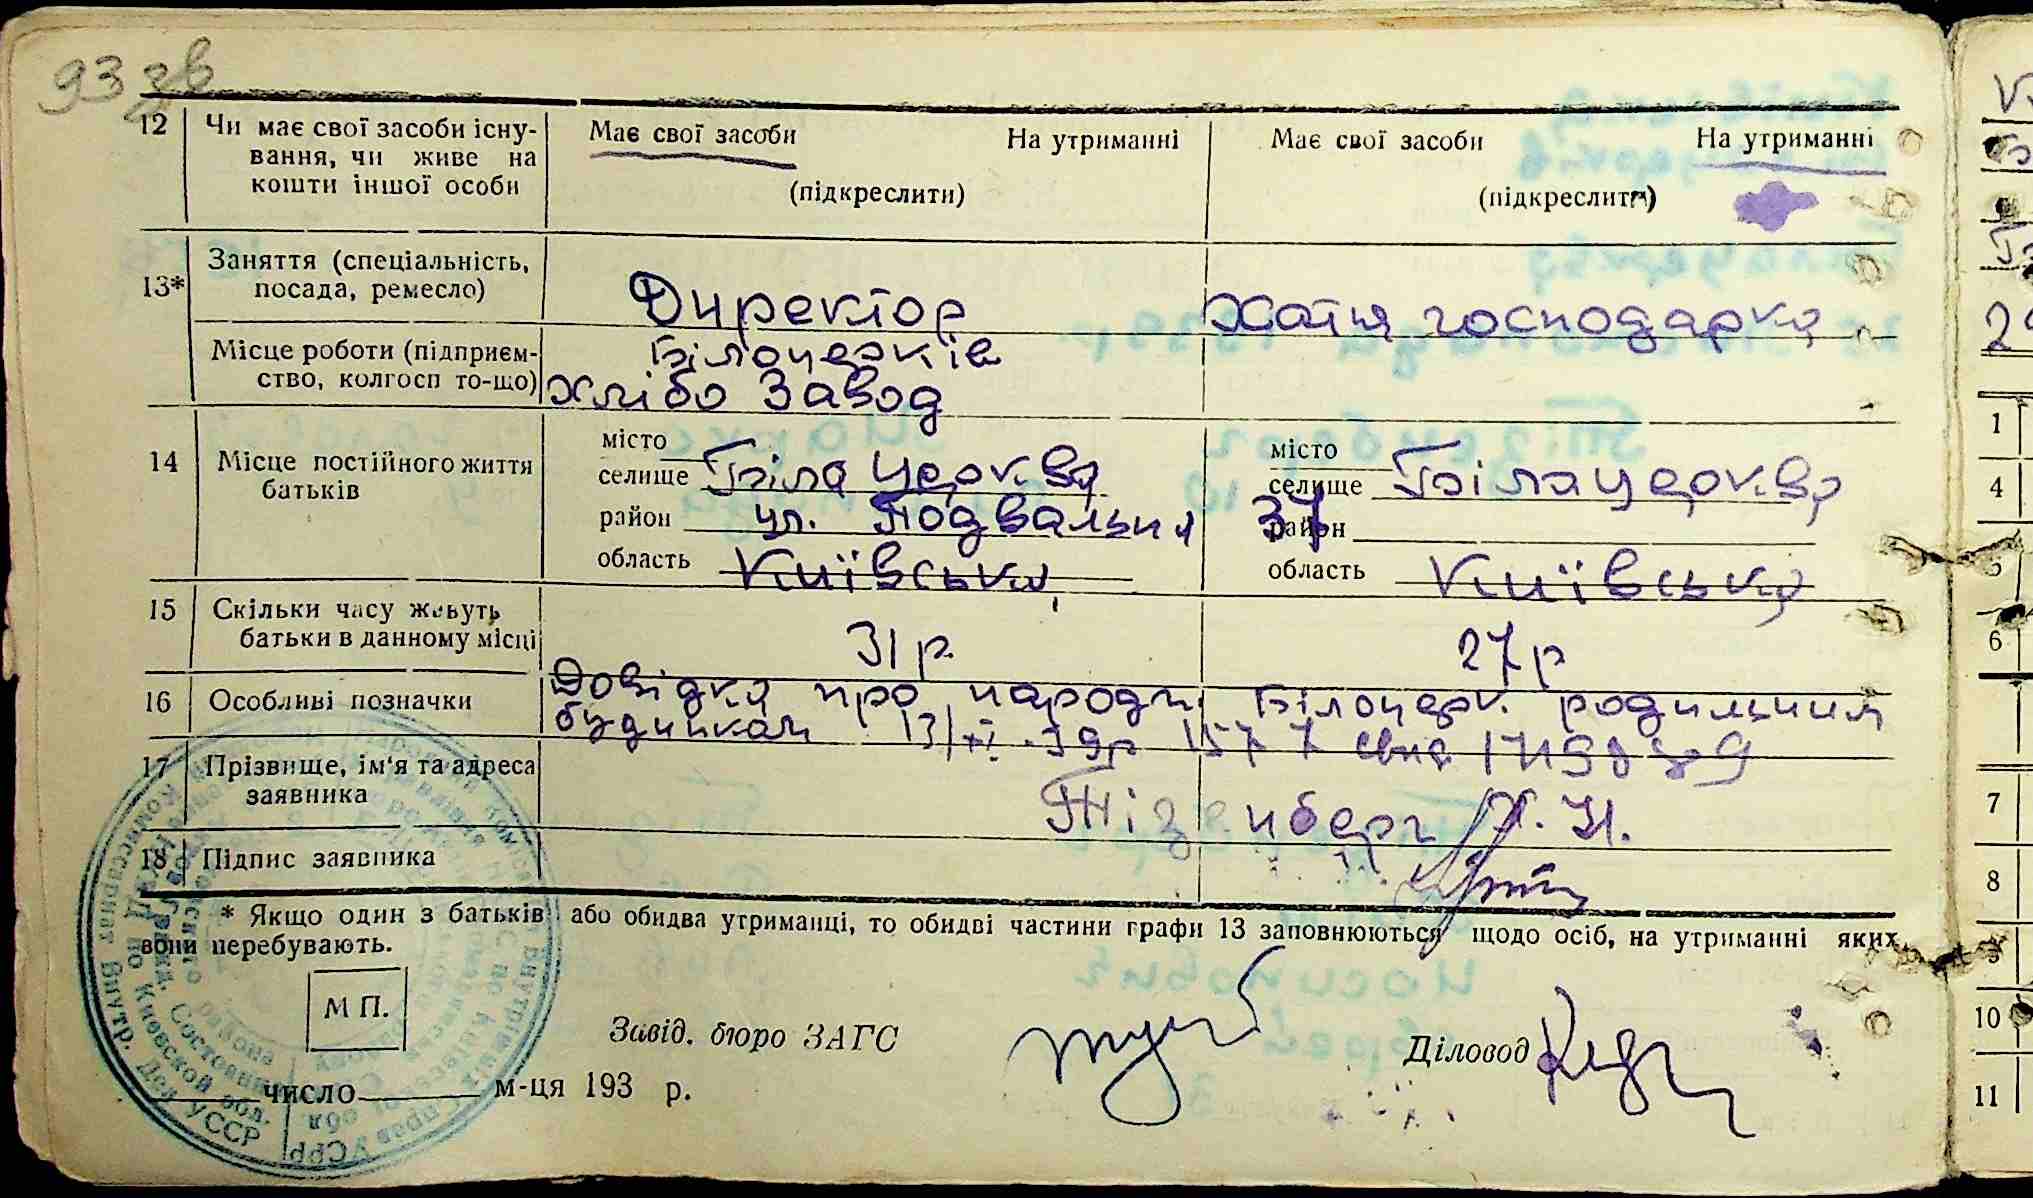 93 зв
12 Чи має свої засоби існу- Має свої засоби На утриманні Має свої засоби На утриманні
вання, чи живе на
кошти іншої особи (підкреслити) (підкреслити)
13* Заняття (спеціальність,
посада, ремесло) Директор Хатня господарка
Місце роботи (підприєм- Білоцерків
ство, колгосп то-що) Хлібо Завод
14 Місце постійного життя
батьків
місто
селище Біла церква
район ул. Подвальня 37
область Київська
місто
селище Біла церква
район
область Київська
15 Скільки часу живуть
батьки в данному місці 31 р. 27 р
16 Особливі позначки Довідка про народж Білоцерк. родильним
будинком 13/XI-39р 1577
17 Прізвище, ім'я та адреса
заявника Тізенберг Й.
18 Підпис заявника
* Якщо один з батьків або обидва утриманці, то обидві частини графи 13 заповнюються щодо осіб, на утриманні яких
вони перебувають.
М П.
Завід. бюро ЗАГС Діловод
число м-ця 193 р.
1
4
5
6
7
8
9
10
11